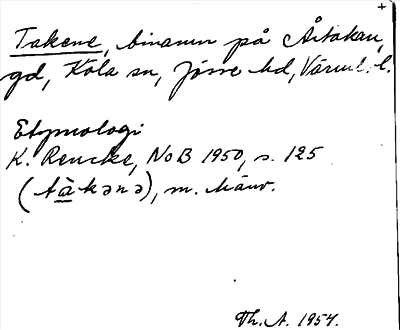 Takene, binamn på Åstakan,
gd, Köla sn, Jösse hd, Värml. l.
Etymologi
K. Rencke, NoB 1950, s. 125
(tàkənə), m. hänv.
Th. A. 1954.